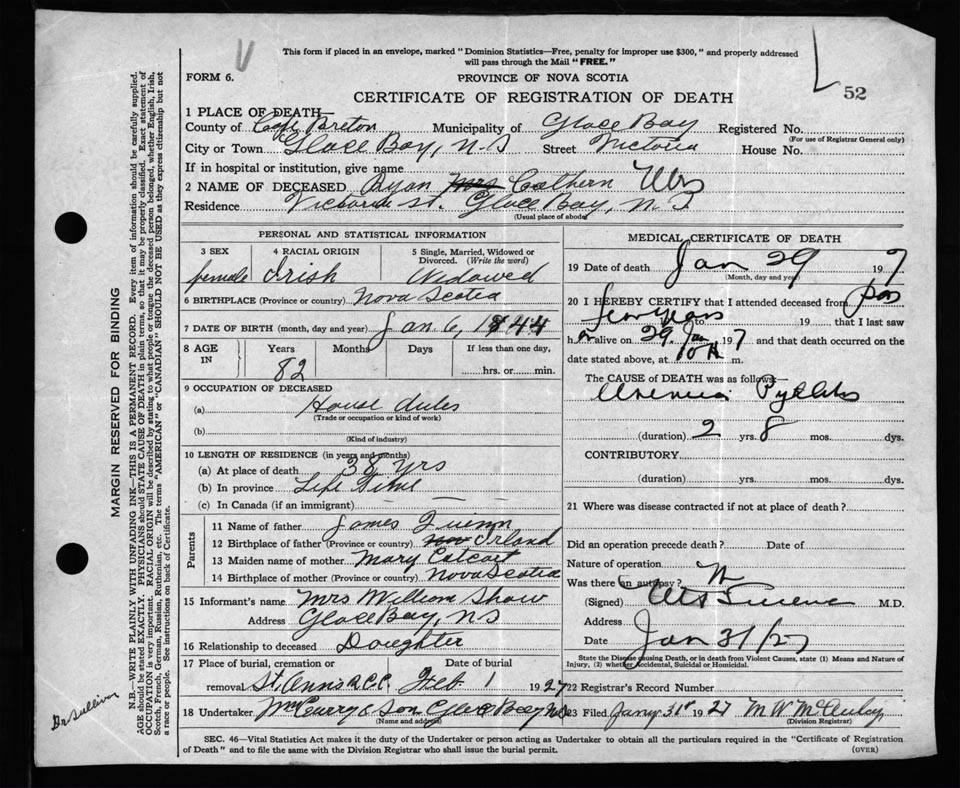 This form if placed in an envelope, marked "Dominion Statistics—Free, penalty for improper use $300," and properly addressed
will pass through the Mail "FREE."
FORM 6.
PROVINCE OF NOVA SCOTIA
52
CERTIFICATE OF REGISTRATION OF DEATH
1 PLACE OF DEATH—
County of Cape Breton Municipality of Glace Bay Registered No.
(For use of Registrar General only)
City or Town Glace Bay, N.S Street Victoria House No.
If in hospital or institution, give name
2 NAME OF DECEASED Ryan Mrs Cathern Mrs
Residence Victoria St. Glace Bay, N.S
(Usual place of abode)
PERSONAL AND STATISTICAL INFORMATION
3 SEX 4 RACIAL ORIGIN 5 Single, Married, Widowed or Divorced. (Write the word)
female Irish Widowed
6 BIRTHPLACE (Province or country) Nova Scotia
7 DATE OF BIRTH (month, day and year) Jan 6, 1844
8 AGE IN Years Months Days If less than one day,
82 hrs. or min.
9 OCCUPATION OF DECEASED
(a) House duties
(Trade or occupation or kind of work)
(b)
(Kind of industry)
10 LENGTH OF RESIDENCE (in years and months)
(a) At place of death 38 yrs
(b) In province Life Time
(c) In Canada (if an immigrant)
Parents
11 Name of father James Quinn
12 Birthplace of father (Province or country) Irland
13 Maiden name of mother Mary
14 Birthplace of mother (Province or country) Nova Scotia
15 Informant's name Mrs William Shaw
Address Glace Bay, N.S
16 Relationship to deceased Daughter
17 Place of burial, cremation or Date of burial
removal St. Anns R.C.C. Feb 1 1927
18 Undertaker McCurry & Son Glace Bay N.S
(Name and address)
MEDICAL CERTIFICATE OF DEATH
19 Date of death Jan 29 197
(Month, day and year)
20 I HEREBY CERTIFY that I attended deceased from for
few years to 19 that I last saw
her alive on 29. Jan 197 and that death occurred on the
date stated above, at 10 A m.
The CAUSE of DEATH was as follows:—
(duration) 2 yrs. 8 mos. dys.
CONTRIBUTORY
(duration) yrs. mos. dys.
21 Where was disease contracted if not at place of death?
Did an operation precede death? Date of
Nature of operation
Was there an autopsy?
(Signed) M.D.
Address
Date Jan 31/27
State the Disease causing Death, or in death from Violent Causes, state (1) Means and Nature of
Injury, (2) whether Accidental, Suicidal or Homicidal.
22 Registrar's Record Number
23 Filed Jany 31st 1927 M W
(Division Registrar)
SEC. 46—Vital Statistics Act makes it the duty of the Undertaker or person acting as Undertaker to obtain all the particulars required in the "Certificate of Registration
of Death" and to file the same with the Division Registrar who shall issue the burial permit.
(OVER)
MARGIN RESERVED FOR BINDING
N.B.—WRITE PLAINLY WITH UNFADING INK—THIS IS A PERMANENT RECORD. Every item of information should be carefully supplied.
AGE should be stated EXACTLY. PHYSICIANS should STATE CAUSE OF DEATH in plain terms, so that it may be properly classified. Exact statement of
OCCUPATION is very important. RACIAL ORIGIN will be described by stating to what people or tongue the deceased person belonged, whether English, Irish,
Scotch, French, German, Russian, Ruthenian, etc. The terms "AMERICAN" or "CANADIAN" SHOULD NOT BE USED as they express citizenship but not
a race or people. See instructions on back of Certificate.
Dr Sullivan